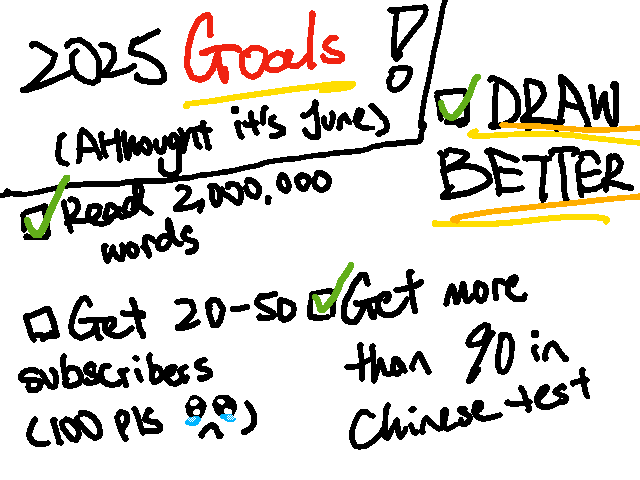 2025 Goals!
(Althought it's June)
DRAW
BETTER
Read 2,000,000
words
Get 20-50
subscribers
(100 pls 🥺)
Get more
than 90 in
Chinese test